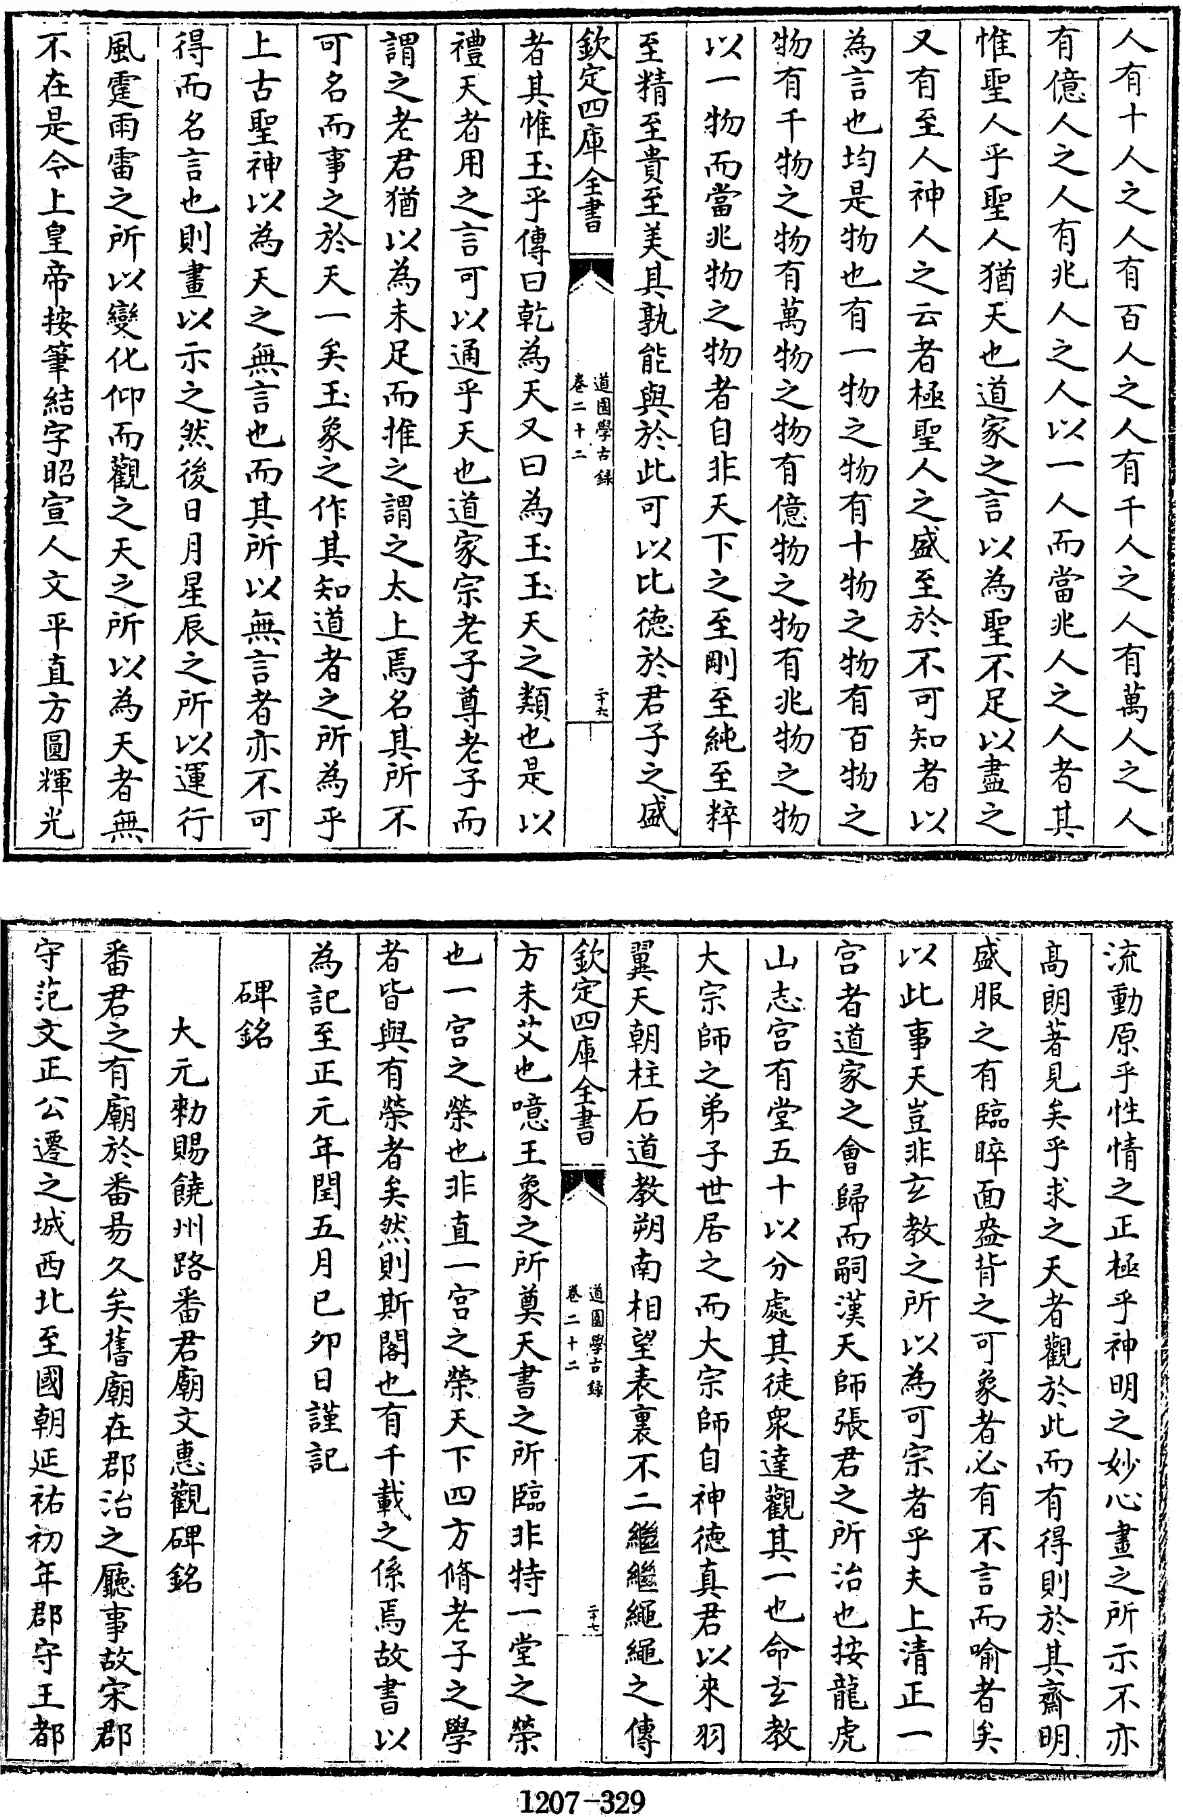 人有十人之人有百人之人有千人之人有萬人之人
有億人之人有兆人之人以一人而當兆人之人者其
惟聖人乎聖人猶天也道家之言以為聖不足以盡之
又有至人神人之云者極聖人之盛至於不可知者以
為言也均是物也有一物之物有十物之物有百物之
物有千物之物有萬物之物有億物之物有兆物之物
以一物而當兆物之物者自非天下之至剛至純至粹
至精至貴至美其孰能與於此可以比德於君子之盛
欽定四庫全書
道園學古録
卷二十二
二十六
者其惟玉乎傳曰乾為天又曰為玉玉天之類也是以
禮天者用之言可以通乎天也道家宗老子尊老子而
謂之老君猶以為未足而推之謂之太上焉名其所不
可名而事之於天一矣玉象之作其知道者之所為乎
上古聖神以為天之無言也而其所以無言者亦不可
得而名言也則畫以示之然後日月星辰之所以運行
風霆雨雷之所以變化仰而觀之天之所以為天者無
不在是令上皇帝按筆結字昭宣人文平直方圓輝光
流動原乎性情之正極乎神明之妙心畫之所示不亦
高朗著見矣乎求之天者觀於此而有得則於其齋明
盛服之有臨睟面盎背之可象者必有不言而喻者矣
以此事天豈非玄教之所以為可宗者乎夫上清正一
宮者道家之會歸而嗣漢天師張君之所治也按龍虎
山志宮有堂五十以分處其徒衆達觀其一也命玄教
大宗師之弟子世居之而大宗師自神德真君以來羽
翼天朝柱石道教朔南相望表裏不二繼繼繩繩之傳
欽定四庫全書
道園學古録
卷二十二
二十七
方未艾也噫王象之所奠天書之所臨非特一堂之榮
也一宮之榮也非直一宮之榮天下四方脩老子之學
者皆與有榮者矣然則斯閣也有千載之係焉故書以
為記至正元年閏五月己卯日謹記
碑銘
大元勑賜饒州路番君廟文惠觀碑銘
番君之有廟於番易久矣舊廟在郡治之廳事故宋郡
守范文正公遷之城西北至國朝延祐初年郡守王都
1207-329